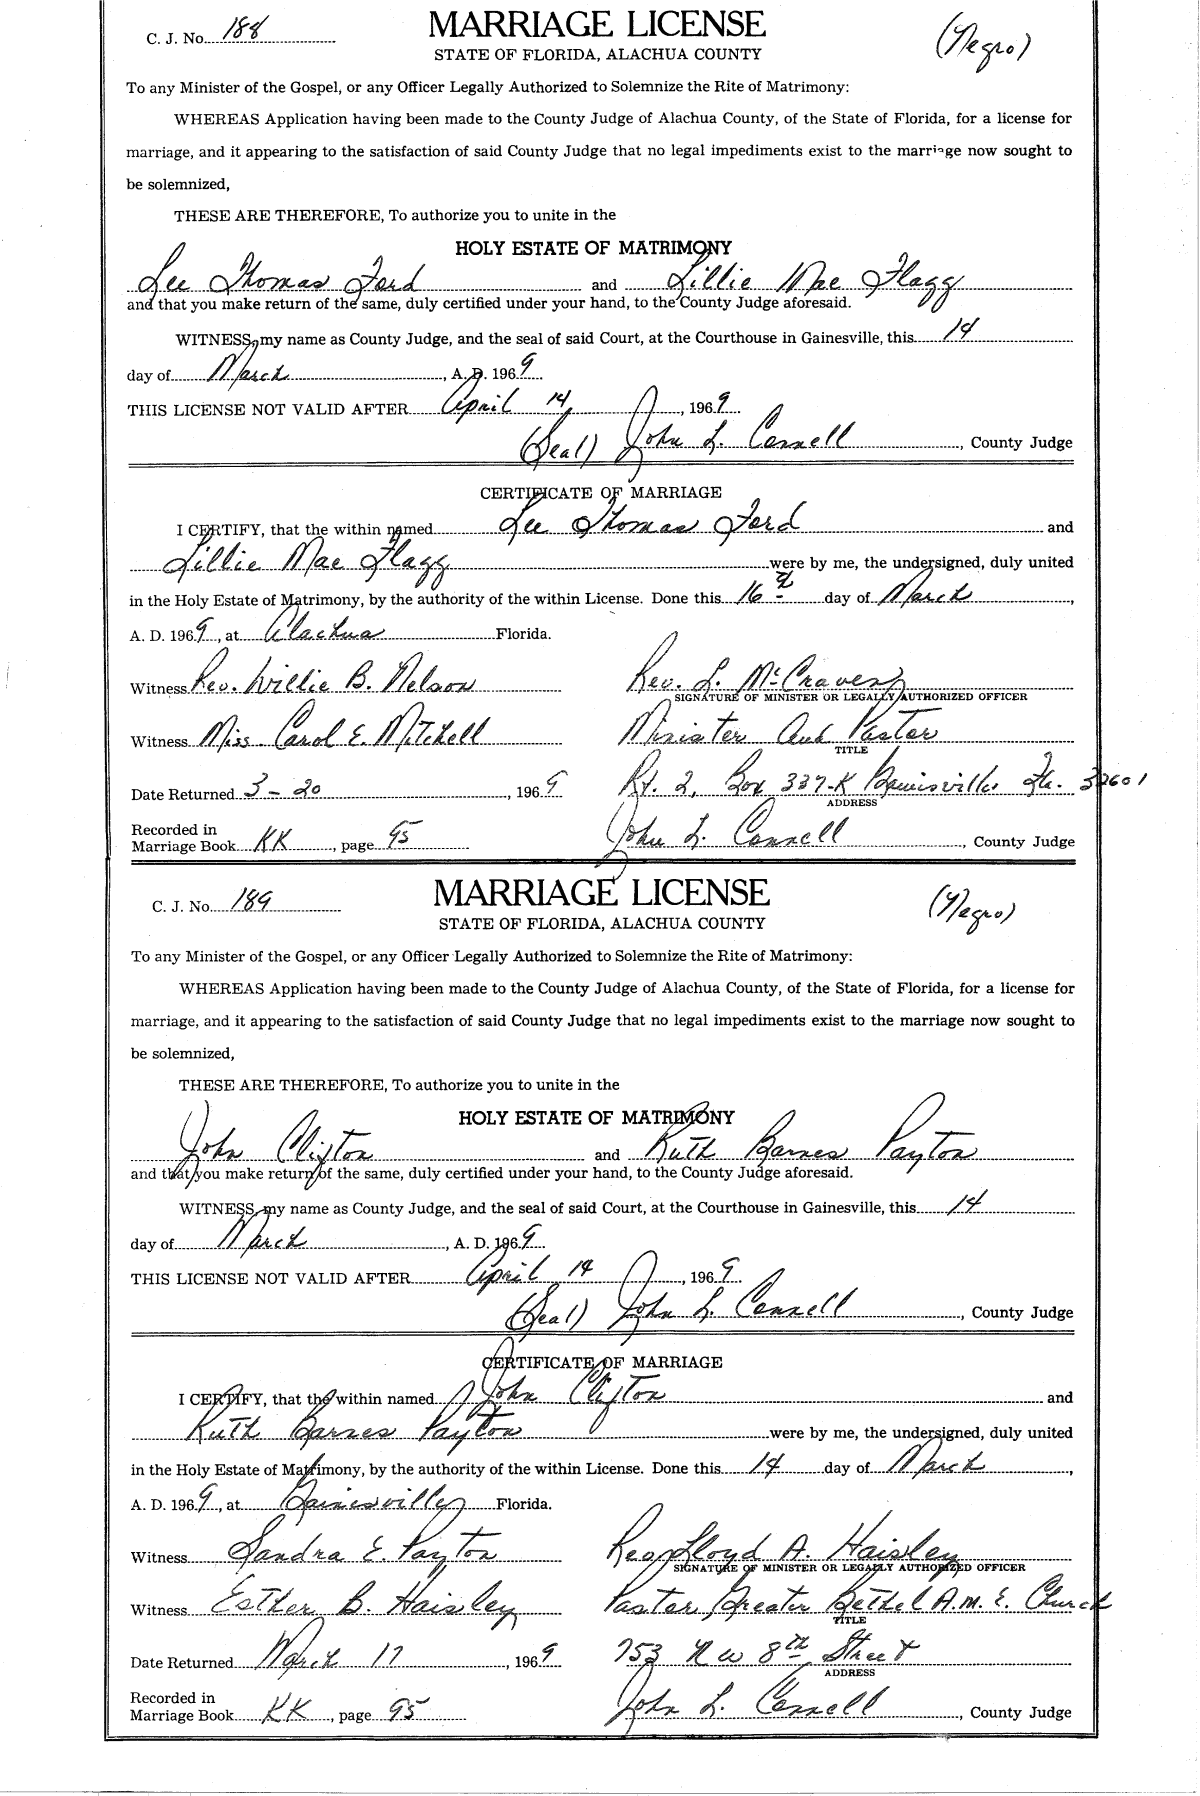 C. J. No. 188
MARRIAGE LICENSE
(Negro)
STATE OF FLORIDA, ALACHUA COUNTY
To any Minister of the Gospel, or any Officer Legally Authorized to Solemnize the Rite of Matrimony:
WHEREAS Application having been made to the County Judge of Alachua County, of the State of Florida, for a license for
marriage, and it appearing to the satisfaction of said County Judge that no legal impediments exist to the marriage now sought to
be solemnized,
THESE ARE THEREFORE, To authorize you to unite in the
HOLY ESTATE OF MATRIMONY
Lee Thomas Ford and Lillie Mae Flagg
and that you make return of the same, duly certified under your hand, to the County Judge aforesaid.
WITNESS, my name as County Judge, and the seal of said Court, at the Courthouse in Gainesville, this 14
day of March, A. D. 1969.
THIS LICENSE NOT VALID AFTER April 14, 1969.
(Seal) John L. Connell, County Judge
CERTIFICATE OF MARRIAGE
I CERTIFY, that the within named Lee Thomas Ford and
Lillie Mae Flagg were by me, the undersigned, duly united
in the Holy Estate of Matrimony, by the authority of the within License. Done this 16th day of March,
A. D. 1969, at Alachua Florida.
Witness Rev. Willie B. Nelson Rev. L. McCraven
SIGNATURE OF MINISTER OR LEGALLY AUTHORIZED OFFICER
Witness Miss. Carol E. Mitchell Minister And Pastor
TITLE
Date Returned 3-20, 1969 Rt. 2, Box 337-K Gainsville, Fla. 32601
ADDRESS
Recorded in
Marriage Book KK, page 95 John L. Connell, County Judge
C. J. No. 189
MARRIAGE LICENSE
(Negro)
STATE OF FLORIDA, ALACHUA COUNTY
To any Minister of the Gospel, or any Officer Legally Authorized to Solemnize the Rite of Matrimony:
WHEREAS Application having been made to the County Judge of Alachua County, of the State of Florida, for a license for
marriage, and it appearing to the satisfaction of said County Judge that no legal impediments exist to the marriage now sought to
be solemnized,
THESE ARE THEREFORE, To authorize you to unite in the
HOLY ESTATE OF MATRIMONY
John Clifton and Ruth Barnes Payton
and that you make return of the same, duly certified under your hand, to the County Judge aforesaid.
WITNESS, my name as County Judge, and the seal of said Court, at the Courthouse in Gainesville, this 14
day of March, A. D. 1969.
THIS LICENSE NOT VALID AFTER April 14, 1969.
(Seal) John L. Connell, County Judge
CERTIFICATE OF MARRIAGE
I CERTIFY, that the within named John Clifton and
Ruth Barnes Payton were by me, the undersigned, duly united
in the Holy Estate of Matrimony, by the authority of the within License. Done this 14 day of March,
A. D. 1969, at Gainesville, Florida.
Witness Sandra E. Payton Rev. Lloyd A. Haisley
SIGNATURE OF MINISTER OR LEGALLY AUTHORIZED OFFICER
Witness Esther B. Haisley Pastor, Greater Bethel A.M.E. Church
TITLE
Date Returned March 17, 1969 753 NW 8th Street
ADDRESS
Recorded in
Marriage Book KK, page 95 John L. Connell, County Judge